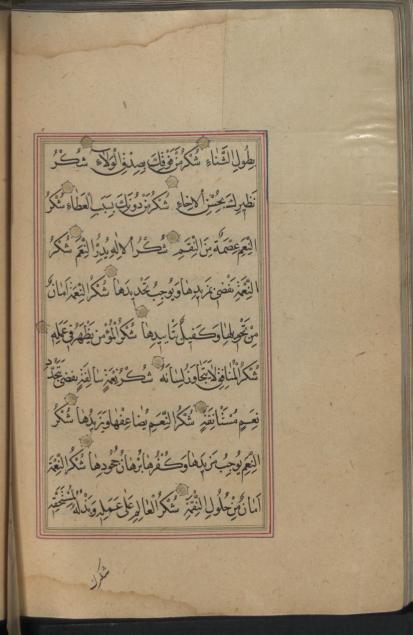 بِطُولِ الثَّنَاءِ شُكْرُ مَنْ فَوْقَكَ بِصِدْقِ الْوَلَاءِ شُكْرُ
نَظِيرِكَ بِحُسْنِ الْإِخَاءِ شُكْرُ مَنْ دُونَكَ بِسَيْبِ الْعَطَاءِ شُكْرُ
النِّعَمِ عِصْمَةٌ مِنَ النِّقَمِ شُكْرُ الْإِلٰهِ يُدِرُّ النِّعَمَ شُكْرُ
النِّعْمَةِ يَقْضِي بِمَزِيدِهَا وَيُوجِبُ تَجْدِيدَهَا شُكْرُ النِّعْمَةِ أَمَانٌ
مِنْ تَحْوِيلِهَا وَكَفِيلٌ بِتَأْيِيدِهَا شُكْرُ الْمُؤْمِنِ يَظْهَرُ فِي عَمَلِهِ
شُكْرُ الْمُنَافِقِ لَا يَتَجَاوَزُ لِسَانَهُ شُكْرُ نِعْمَةٍ سَالِفَةٍ يَقْضِي بِتَجَدُّدِ
نِعَمٍ مُسْتَأْنَفَةٍ شُكْرُ النِّعَمِ يُضَاعِفُهَا وَيَزِيدُهَا شُكْرُ
النِّعَمِ يُوجِبُ مَزِيدَهَا وَكُفْرُهَا بُرْهَانُ جُحُودِهَا شُكْرُ النِّعْمَةِ
أَمَانٌ مِنْ حُلُولِ النِّقْمَةِ شُكْرُ الْعَالِمِ عَلَى عَمَلِهِ وَبَذْلُهُ لِمُسْتَحِقِّهِ
شكرك